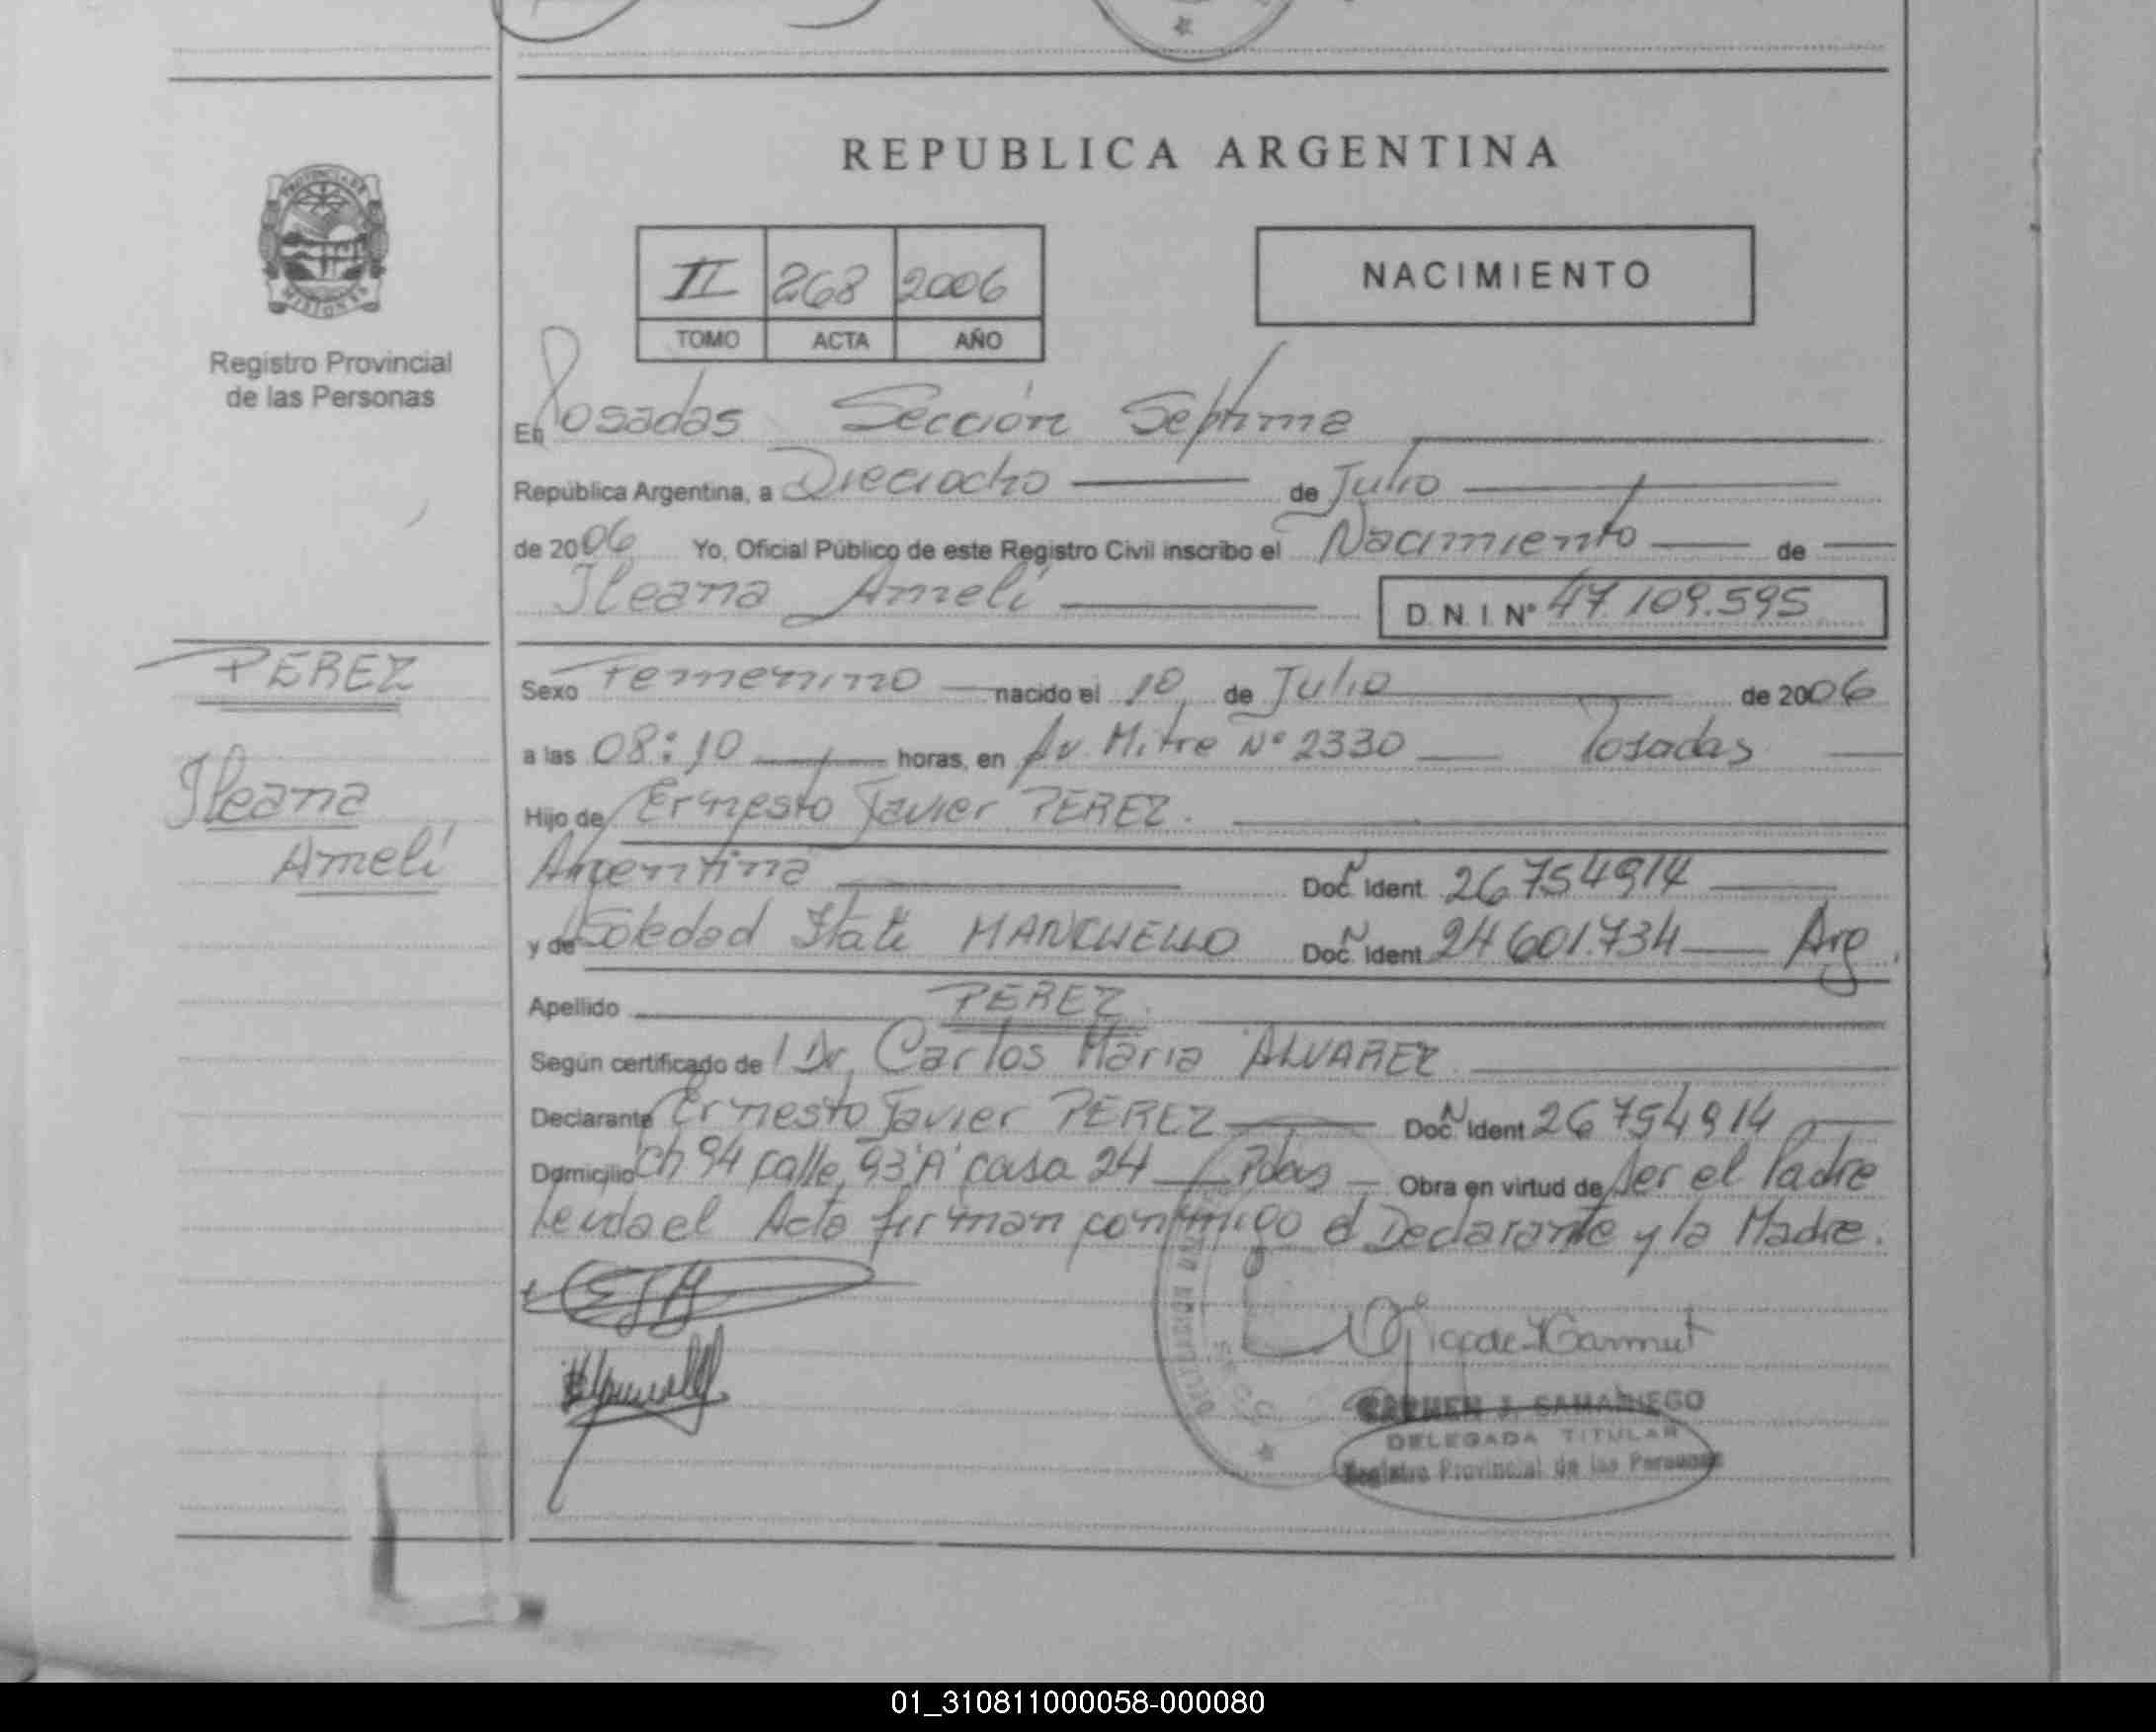 REPUBLICA ARGENTINA
PROVINCIA DE
MISIONES
Registro Provincial
de las Personas
II 268 2006
TOMO ACTA AÑO
NACIMIENTO
En Posadas Sección Septima
República Argentina, a Dieciocho de Julio
de 2006 Yo, Oficial Público de este Registro Civil inscribo el Nacimiento de
Ileana Amelí D.N.I. Nº 47.109.595
PEREZ
Ileana
Amelí
Sexo Femenino nacido el 10 de Julio de 2006
a las 08:10 horas, en Av. Mitre Nº 2330 Posadas
Hijo de Ernesto Javier PEREZ.
Argentina Doc. N Ident 26754914
y de Soledad Itatí MANCUELLO Doc. N Ident 24601.734 Arg.
Apellido PEREZ.
Según certificado de Dr. Carlos Maria ALVAREZ
Declarante Ernesto Javier PEREZ Doc. N Ident 26754914
Domicilio Ch 94 calle 93 "A" casa 24 Pdas Obra en virtud de Ser el Padre
Leida el Acta firman conmigo el Declarante y la Madre.
CARMEN J. SAMANIEGO
DELEGADA TITULAR
Registro Provincial de las Personas
01_310811000058-000080